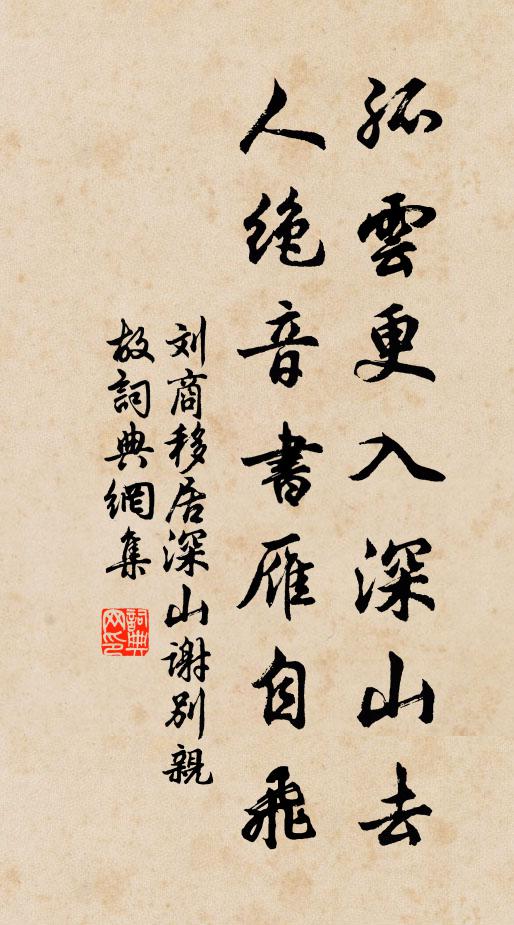 孤雲更入深山去
人绝音書雁自飛
刘商移居深山謝別親
故詞典網集
詞典
网印